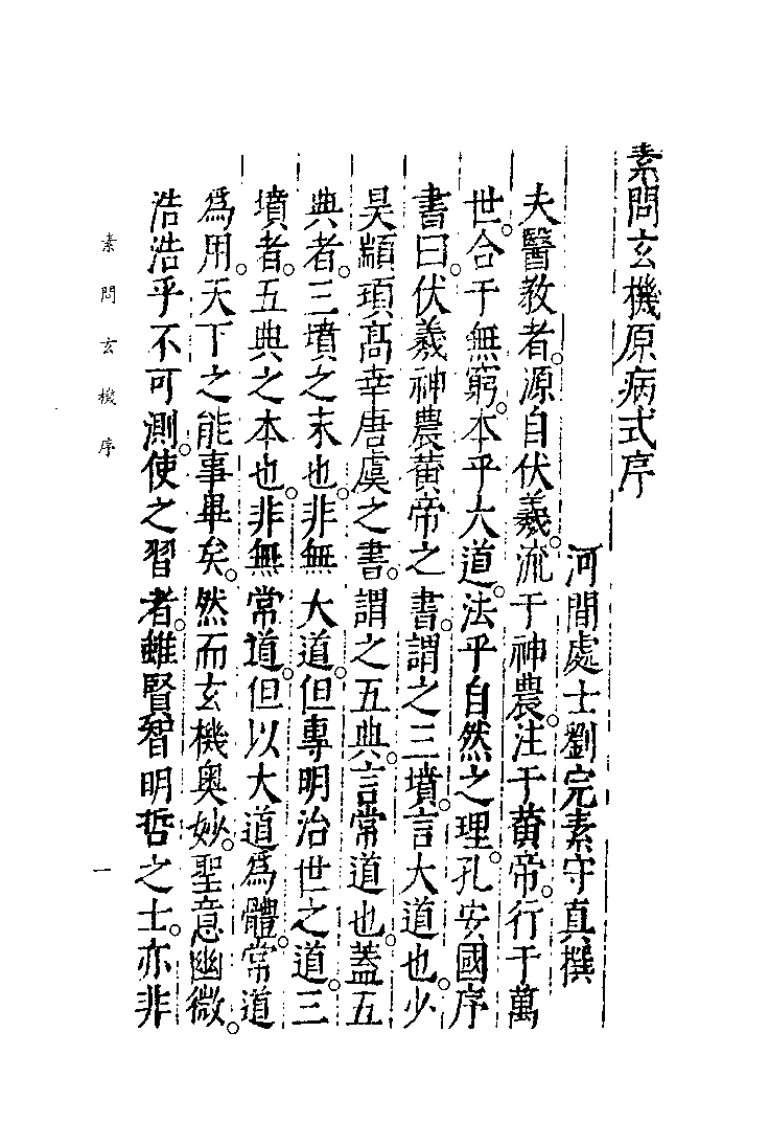 素問玄機原病式序
河間處士劉完素守真撰
夫醫教者。源自伏羲。流于神農。注于黃帝。行于萬
世。合于無窮。本乎大道。法乎自然之理。孔安國序
書曰。伏羲神農黃帝之書。謂之三墳。言大道也。少
昊顓頊高辛唐虞之書。謂之五典。言常道也。蓋五
典者。三墳之末也。非無大道。但專明治世之道。三
墳者。五典之本也。非無常道。但以大道爲體。常道
爲用。天下之能事畢矣。然而玄機奧妙。聖意幽微。
浩浩乎不可測。使之習者。雖賢智明哲之士。亦非
素問玄機序
一